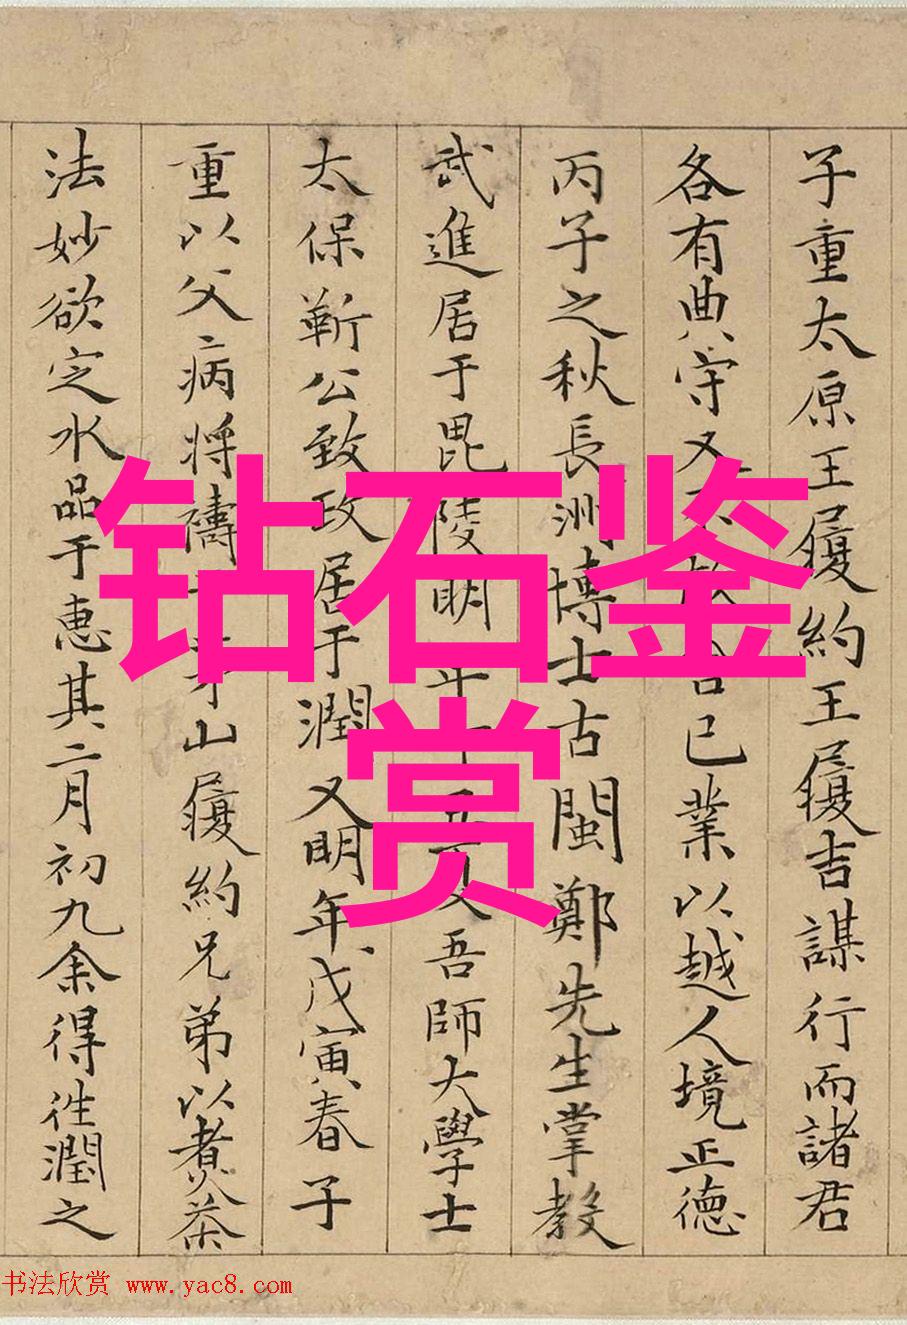 子重太原王履約王履吉謀行而諸君
各有典守又不敢舍己業以越人境正德
丙子之秋長洲博士古閩鄭先生掌教
武進居于毘陵明年丁丑又吾師大學士
太保靳公致政居于潤又明年戊寅春子
重以父病将禱于茅山履約兄弟以煮茶
法妙欲定水品于惠其二月初九余得往潤之
钻石鉴
赏
书法欣赏 www.yac8.com